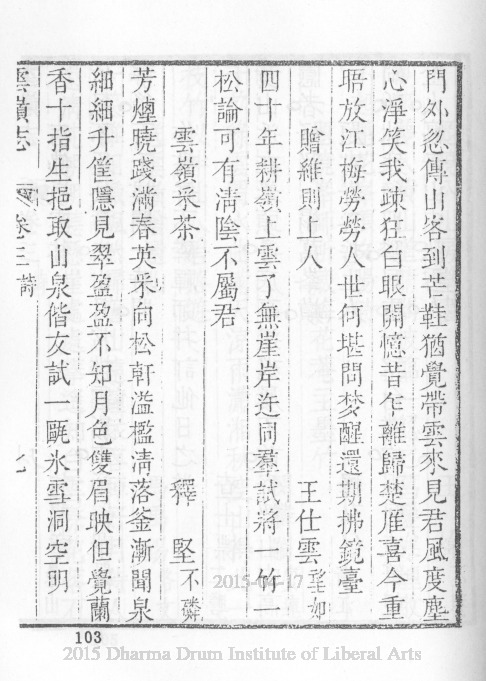 門外忽傳山客到芒鞋猶覺帶雲來見君風度塵
心淨笑我疎狂白眼開憶昔乍離歸楚雁喜今重
晤放江梅勞勞人世何堪問梦醒還期拂鏡臺
贈維則上人 王仕雲望如
四十年耕嶺上雲了無崖岸迕同羣試將一竹一
松論可有清陰不屬君
雲嶺采茶 釋 堅不磷
芳煙曉踐滿春英采向松軒滥槛清落釜漸聞泉
細細升筐隱見翠盈盈不知月色雙眉映但覺蘭
香十指生挹取山泉偕友試一甌氷雪洞空明
雲嶺志 卷三 詩 七
103
2015-04-17
2015 Dharma Drum Institute of Liberal Arts